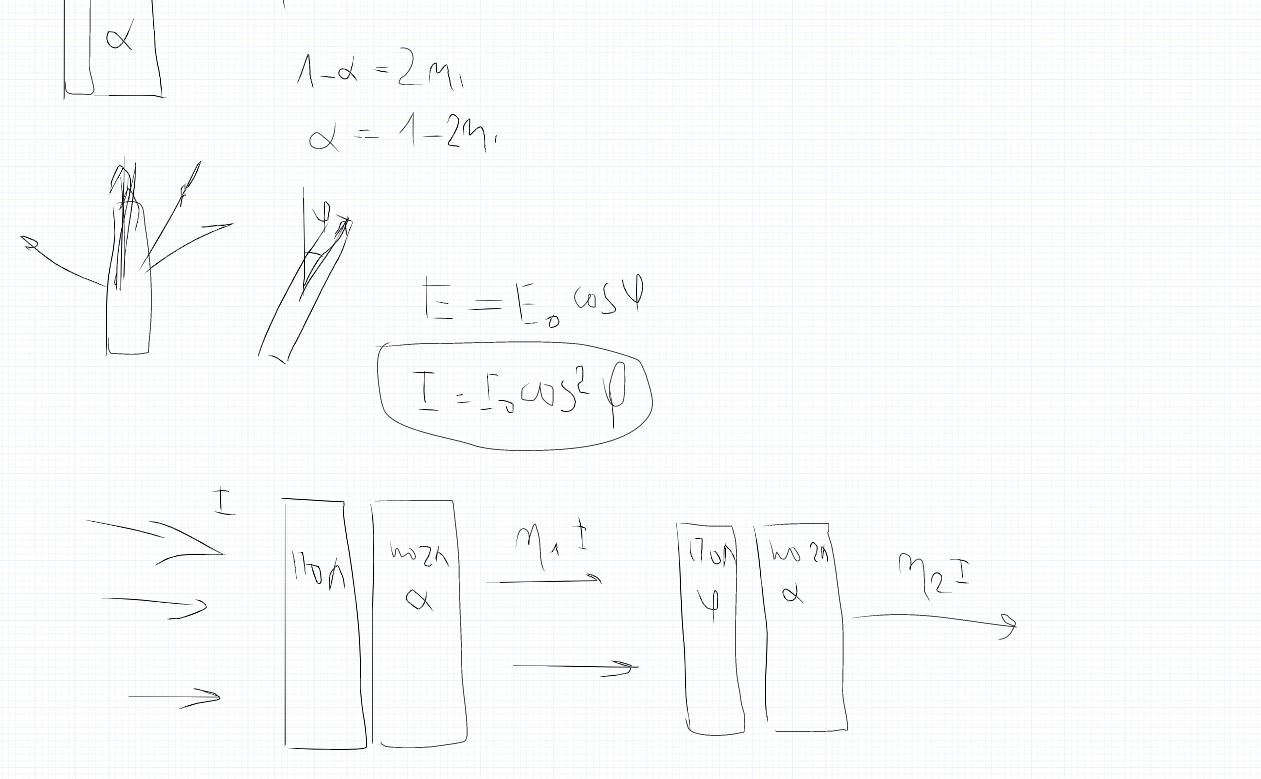 α
1-α = 2η₁
α = 1-2η₁
φ
E = E₀ cosφ
I = I₀ cos² φ
I
пол
погл
α
η₁ I
пол
φ
погл
α
η₂ I